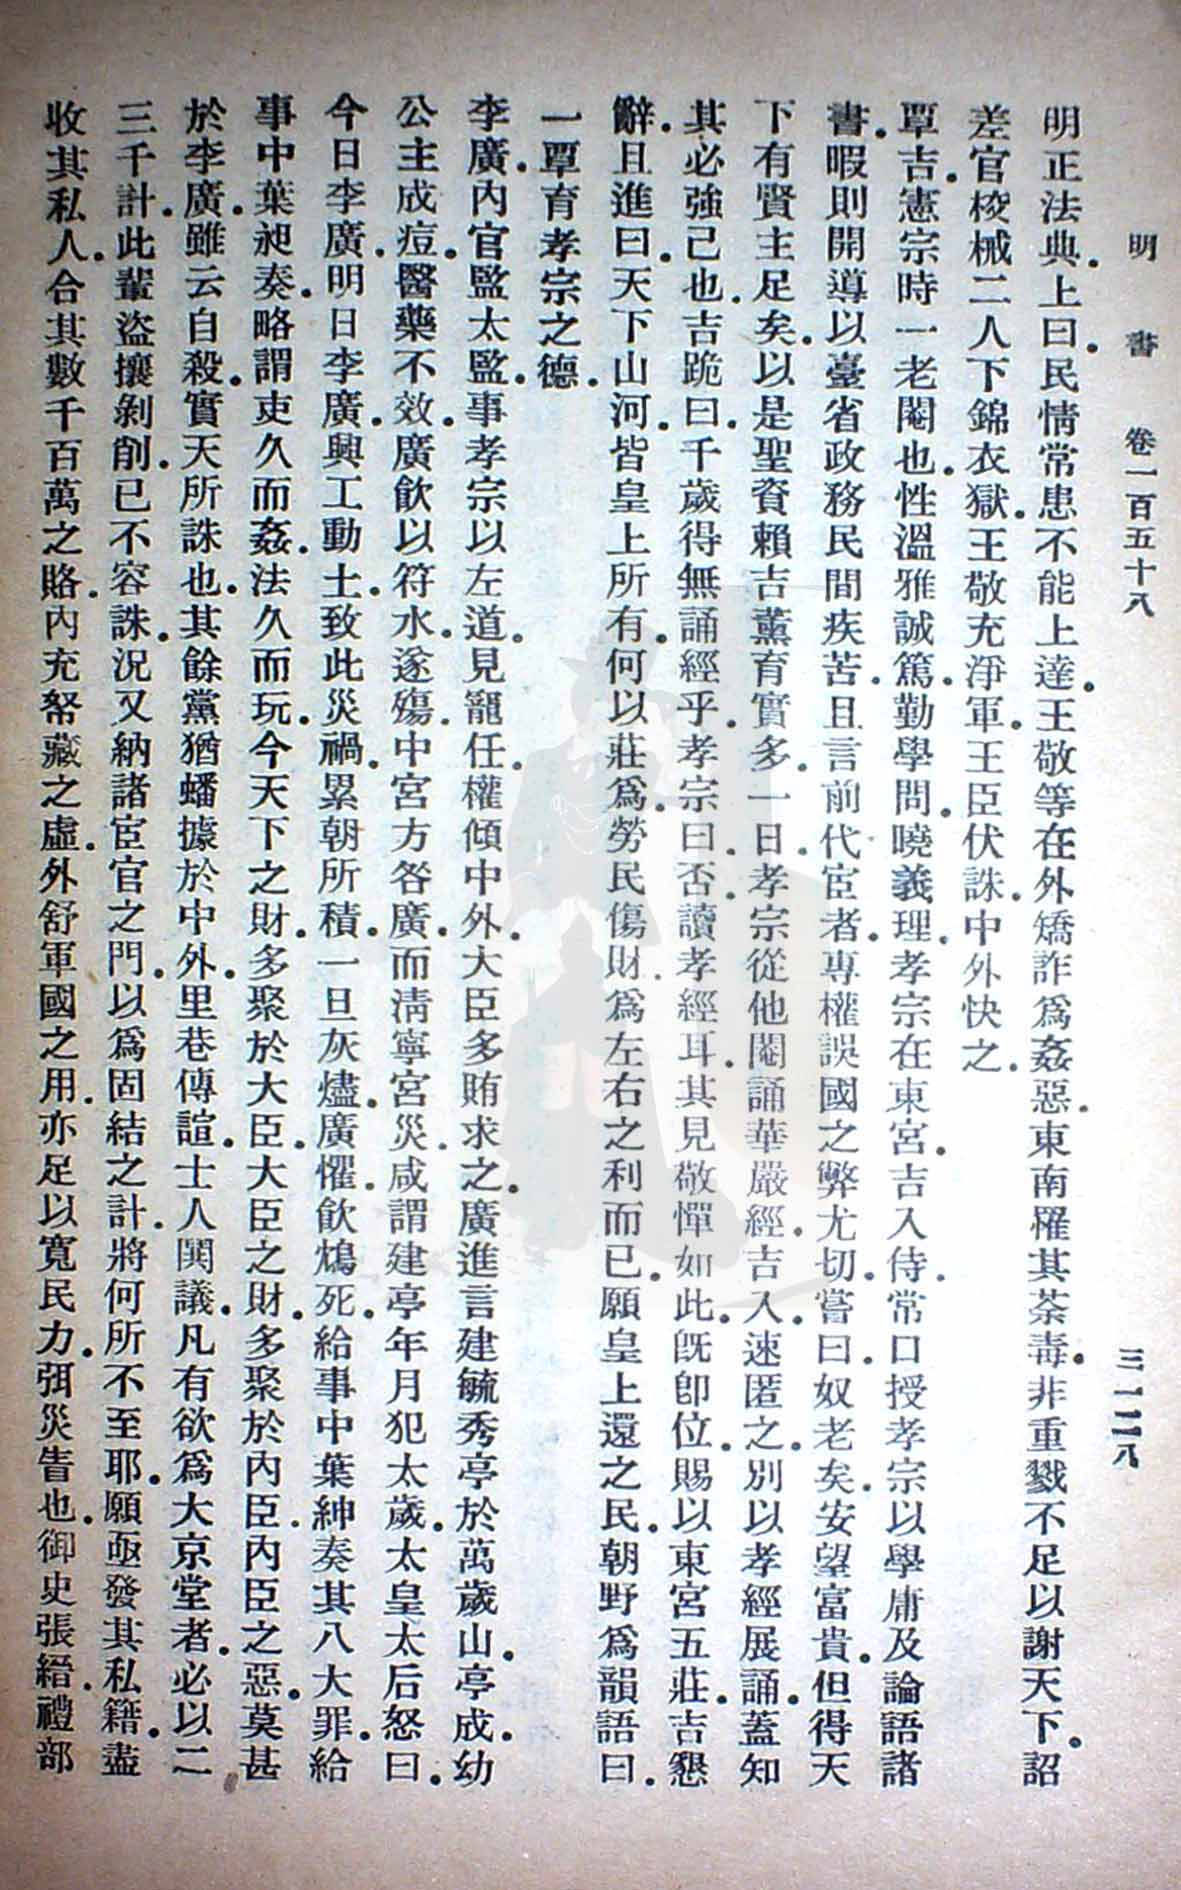 明書　卷一百五十八　三一二八
明正法典。上曰。民情常患不能上達。王敬等在外矯詐爲姦惡。東南罹其荼毒。非重戮不足以謝天下。詔
差官棱械二人下錦衣獄。王敬充淨軍。王臣伏誅。中外快之。
覃吉。憲宗時一老閹也。性溫雅誠篤。勤學問。曉義理。孝宗在東宮。吉入侍。常口授孝宗以學庸及論語諸
書。暇則開導以臺省政務民間疾苦。且言前代宦者。專權誤國之弊尤切。嘗曰。奴老矣。安望富貴。但得天
下有賢主足矣。以是聖資賴吉薰育實多。一日。孝宗從他閹誦華嚴經。吉入。速匿之。別以孝經展誦。蓋知
其必強己也。吉跪曰。千歲得無誦經乎。孝宗曰。否。讀孝經耳。其見敬憚如此。既卽位。賜以東宮五莊。吉懇
辭。且進曰。天下山河。皆皇上所有。何以莊爲。勞民傷財。爲左右之利而已。願皇上還之民。朝野爲韻語曰。
一覃育孝宗之德。
李廣。內官監太監。事孝宗以左道。見寵任。權傾中外。大臣多賄求之。廣進言建毓秀亭於萬歲山。亭成。幼
公主成痘。醫藥不效。廣飮以符水。遂殤。中宮方咎廣。而淸寧宮災。咸謂建亭年月犯太歲。太皇太后怒曰。
今日李廣。明日李廣。興工動土。致此災禍。累朝所積。一旦灰燼。廣懼。飮鴆死。給事中葉紳奏其八大罪。給
事中葉昶奏。略謂吏久而姦。法久而玩。今天下之財。多聚於大臣。大臣之財。多聚於內臣。內臣之惡。莫甚
於李廣。雖云自殺。實天所誅也。其餘黨猶蟠據於中外。里巷傳諠。士人閧議。凡有欲爲大京堂者。必以二
三千計。此輩盜攘剝削。已不容誅。況又納諸宦官之門。以爲固結之計。將何所不至耶。願亟發其私籍。盡
收其私人。合其數千百萬之賂。內充帑藏之虛。外舒軍國之用。亦足以寬民力。弭災眚也。御史張縉。禮部